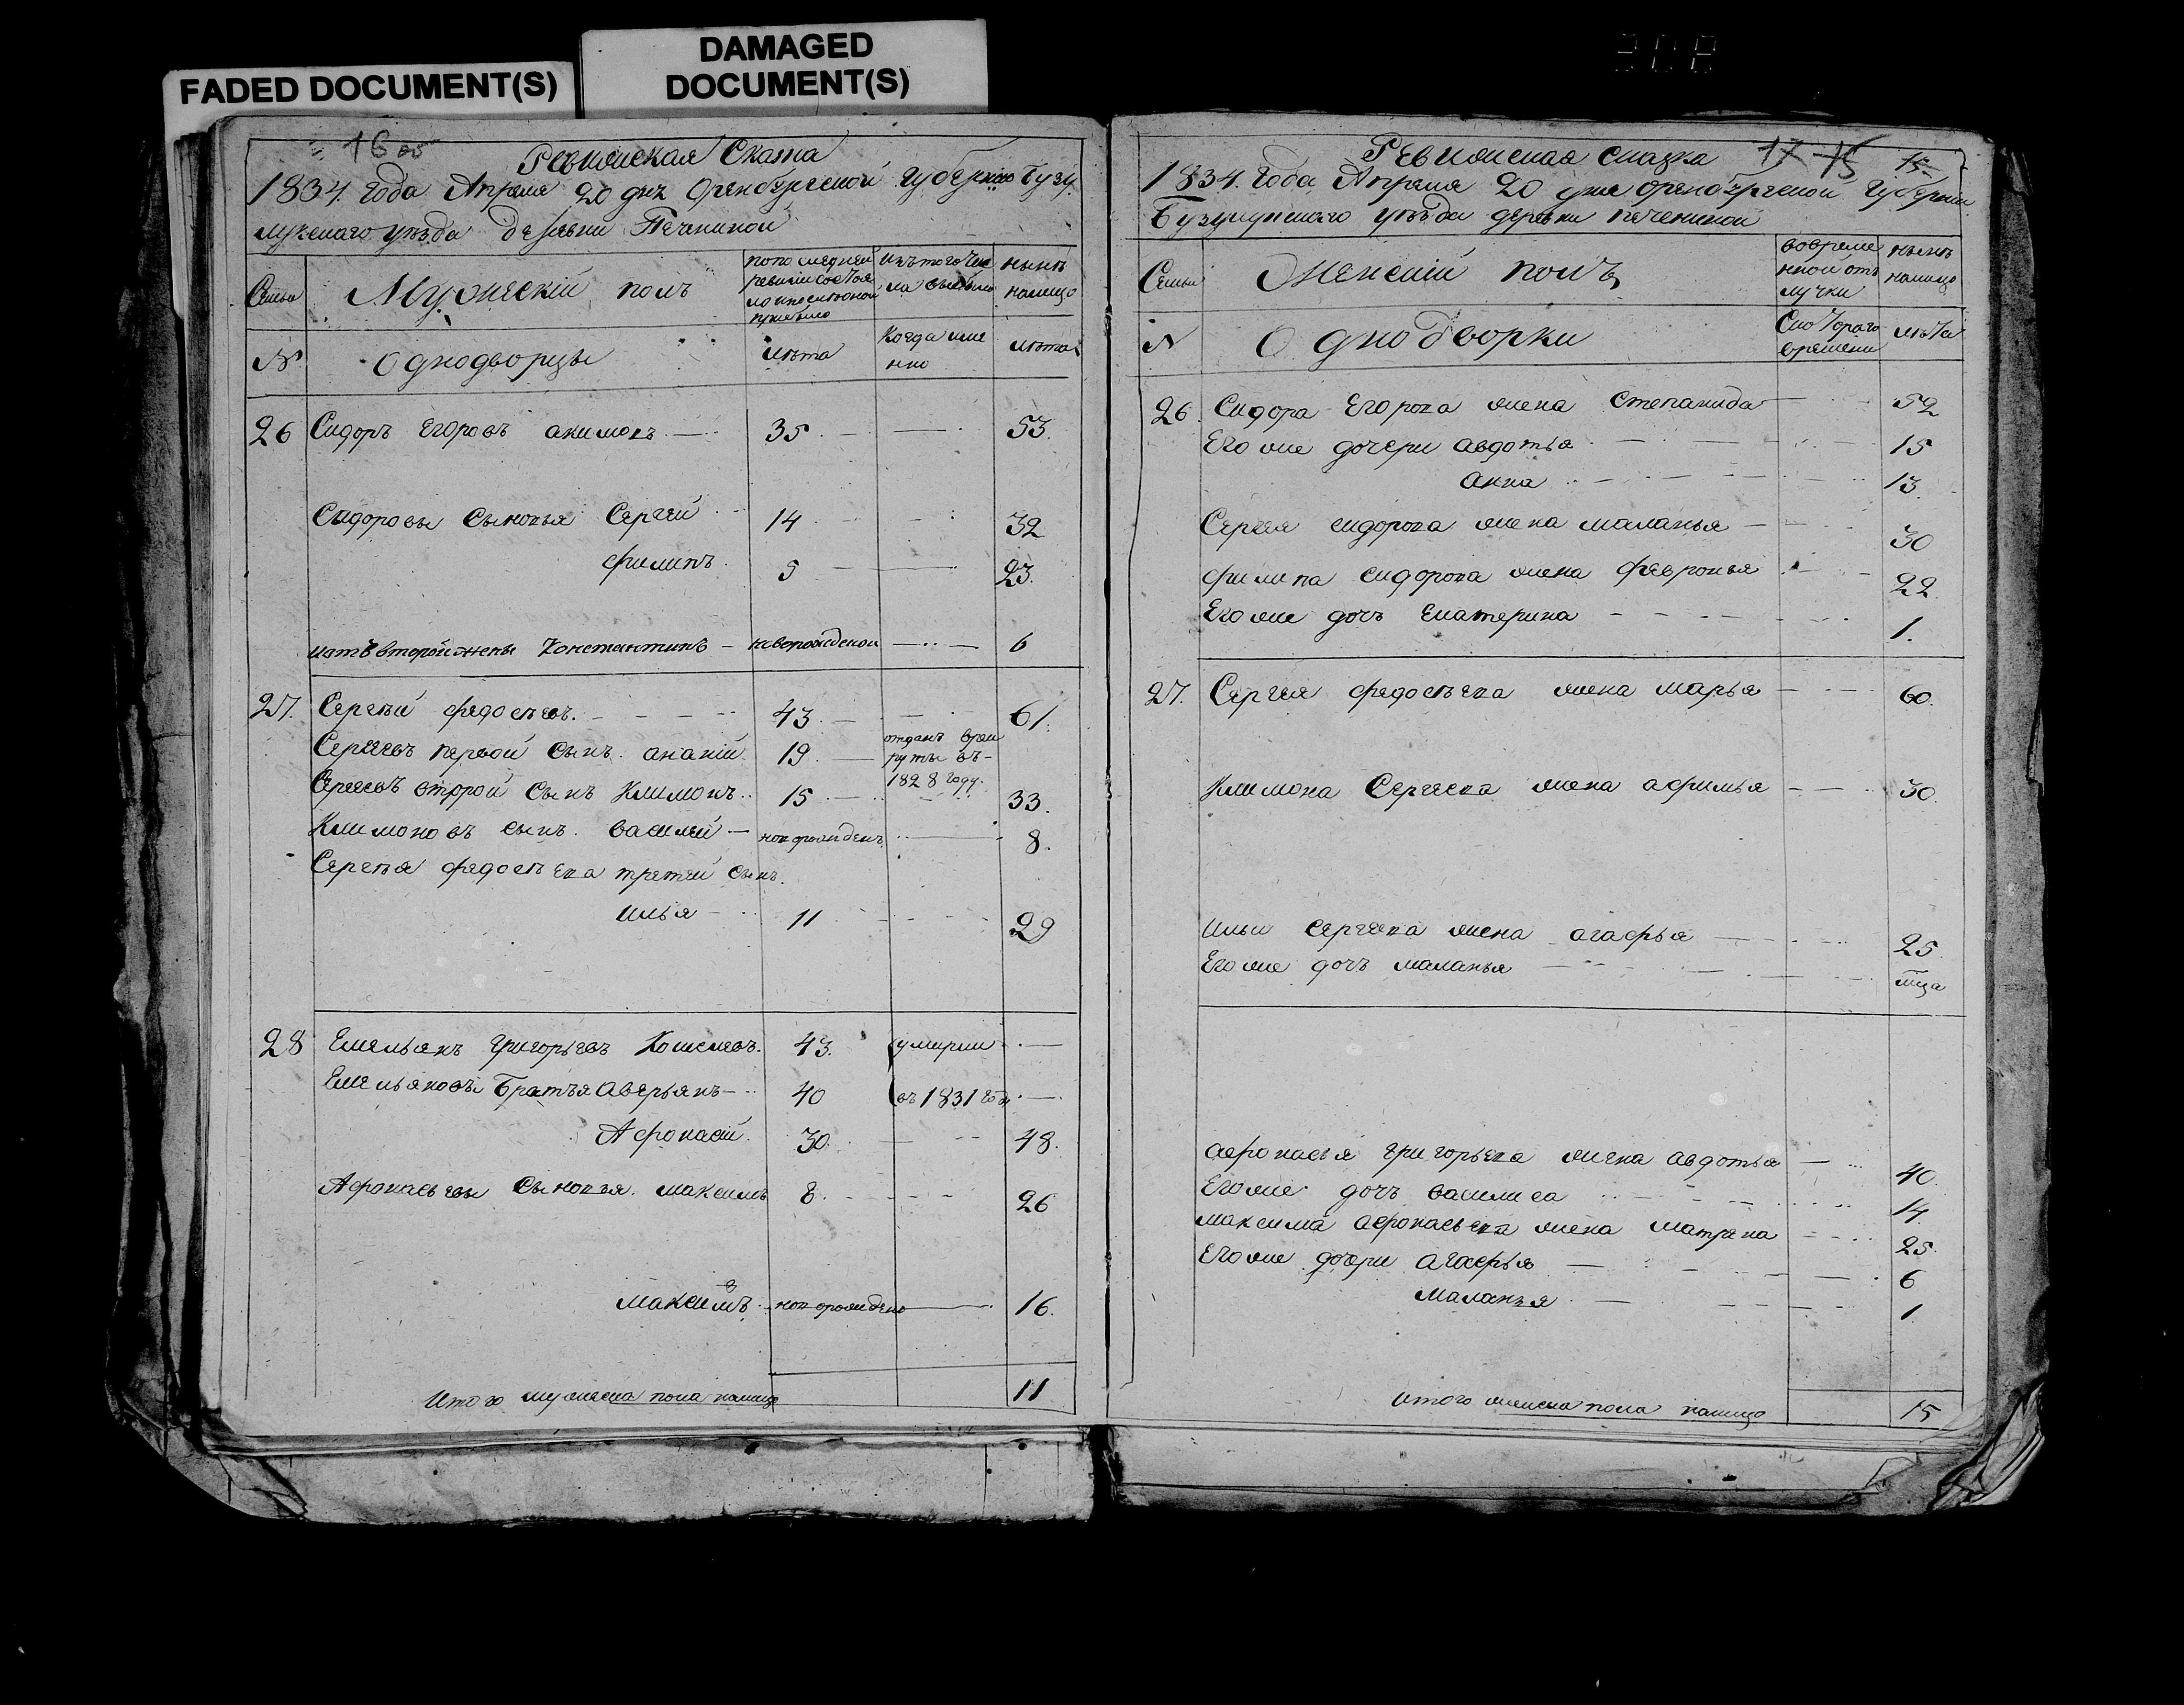 FADED DOCUMENT(S)
DAMAGED
DOCUMENT(S)
16
Ревижская Скаска
1834. года Апреля 20 дня Оренбургской губернии Бузу
лукскаго уезда деревни Печениной
Семьи
Мужескій полъ
по последней
ревизіи состоя
ло и после оной
прибыло
изъ того чис
ла выбыло
ныне
налицо
№
Однодворцы
лета
Когда име
нно
лета
26 Сидоръ Егоровъ акимовъ 35 53.
Сидоровы Сыновья Сергей 14 32
филипъ 5 23.
отъ второй жены Константинъ новорожденой 6
27. Сергей федосеевъ 43 61.
Сергеевъ первой сынъ ананій 19 отданъ врек
руты въ
1828 году.
Сергеевъ второй Сынъ Климонъ 15 33.
Климоновъ сынъ василей новорожденъ 8.
Сергея федосеева третей сынъ
илья 11 29
28 Емельянъ григорьевъ Кошелевъ 43. умерли
Емельяновы Братья Аверьянъ 40 въ 1831 годе
Афонасій 30. 48.
Афонасьевы Сыновья. максимъ 8. 26
максимъ новорожденъ 16.
Итого мужеска пола налицо 11
Ревижская сказка 17 15 15
1834. Года Апреля 20 дня оренбургской губернии
Бузулукского уезда деревни печениной
Семьи
Женскій полъ
вовреме
нной отъ
лучки
ныне
налицо
№
Однодворки
Скотораго
времени
лета
26 Сидора Егорова жена степанида 52
Его же дочери авдотья 15
анна 13
Сергея сидорова жена маланья 30
филипа сидорова жена февронья 22
Его же дочь Екатерина 1.
27. Сергея федосеева жена марья 60.
Климона Сергеева жена афимья 30.
Ильи сергеева жена агафья 25
Его же дочь маланья
афонасья григорьева жена авдотья 40.
Его же дочь василиса 14
максима афонасьева жена матрена 25.
Его же дочери агафья 6
маланья 1
итого женска пола налицо 15